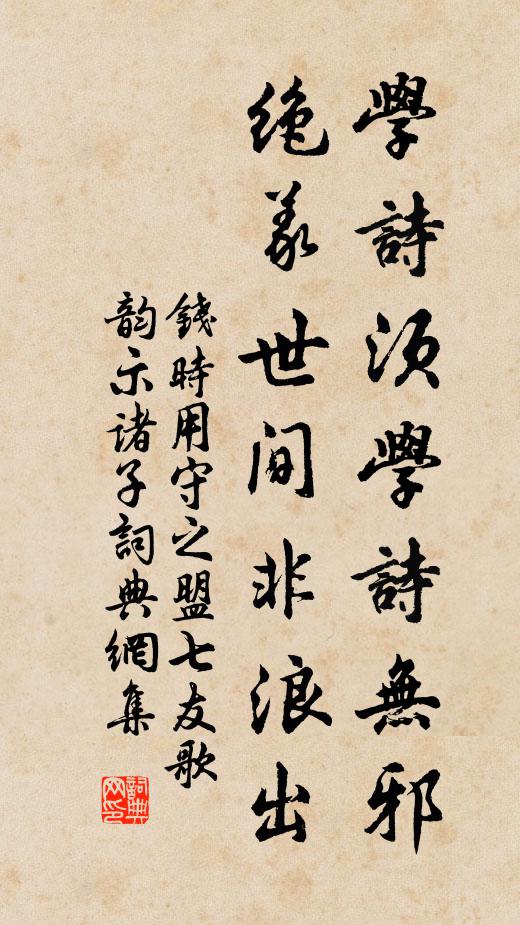 學詩須學詩無邪
絕義世間非浪出
錢時用守之盟七友歌
韵示諸子詞典網集
詞典
网印